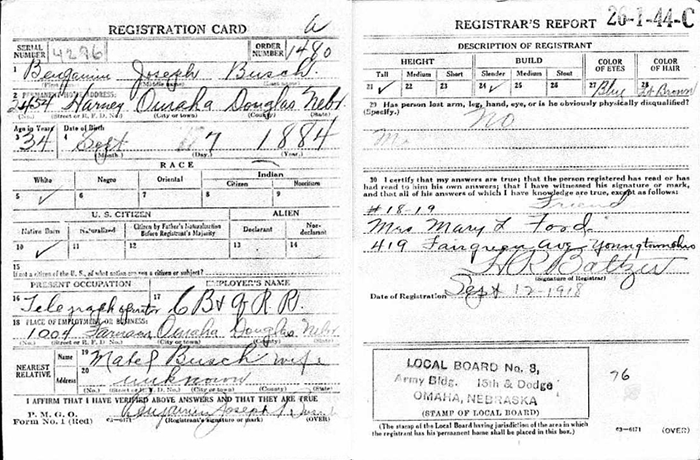 REGISTRATION CARD
SERIAL NUMBER 4296 ORDER NUMBER 1480
1 Benjamin Joseph Busch
(First name) (Middle name) (Last name)
2 PERMANENT HOME ADDRESS:
2454 Harney Omaha Douglas Nebr
(No.) (Street or R. F. D. No.) (City or town) (County) (State)
Age in Years 3 34 Date of Birth 4 Sept 17 1884
(Month.) (Day.) (Year.)
RACE
White Negro Oriental Indian
Citizen Noncitizen
5 ✓ 6 7 8 9
U. S. CITIZEN ALIEN
Native Born Naturalized Citizen by Father's Naturalization Before Registrant's Majority Declarant Non-declarant
10 ✓ 11 12 13 14
15
If not a citizen of the U. S., of what nation are you a citizen or subject?
PRESENT OCCUPATION EMPLOYER'S NAME
16 Telegraph 17 C B & Q R R.
18 PLACE OF EMPLOYMENT OR BUSINESS:
1004 Farnam Omaha Douglas Nebr
(No.) (Street or R. F. D. No.) (City or town) (County) (State)
NEAREST RELATIVE Name 19 Mabel Busch wife
Address 20 unknown
(No.) (Street or R. F. D. No.) (City or town) (County) (State)
I AFFIRM THAT I HAVE VERIFIED ABOVE ANSWERS AND THAT THEY ARE TRUE
P. M. G. O.
Form No. 1 (Red) Benjamin Joseph Busch
(Registrant's signature or mark) (OVER)
REGISTRAR'S REPORT 26-1-44-C
DESCRIPTION OF REGISTRANT
HEIGHT BUILD COLOR OF EYES COLOR OF HAIR
Tall Medium Short Slender Medium Stout
21 ✓ 22 23 24 ✓ 25 26 27 Blue 28 Lt Brown
29 Has person lost arm, leg, hand, eye, or is he obviously physically disqualified?
(Specify.) No
30 I certify that my answers are true; that the person registered has read or has
had read to him his own answers; that I have witnessed his signature or mark,
and that all of his answers of which I have knowledge are true, except as follows:
#18-19 Friend
Mrs Mary L Food
419 Fairgreen Ave Youngtown Ohio
H R Baltzer
(Signature of Registrar)
Date of Registration Sept 12-1918
LOCAL BOARD No. 3,
Army Bldg. 15th & Dodge
OMAHA, NEBRASKA
(STAMP OF LOCAL BOARD)
76
(The stamp of the Local Board having jurisdiction of the area in which
the registrant has his permanent home shall be placed in this box.)
63-6171 (OVER)